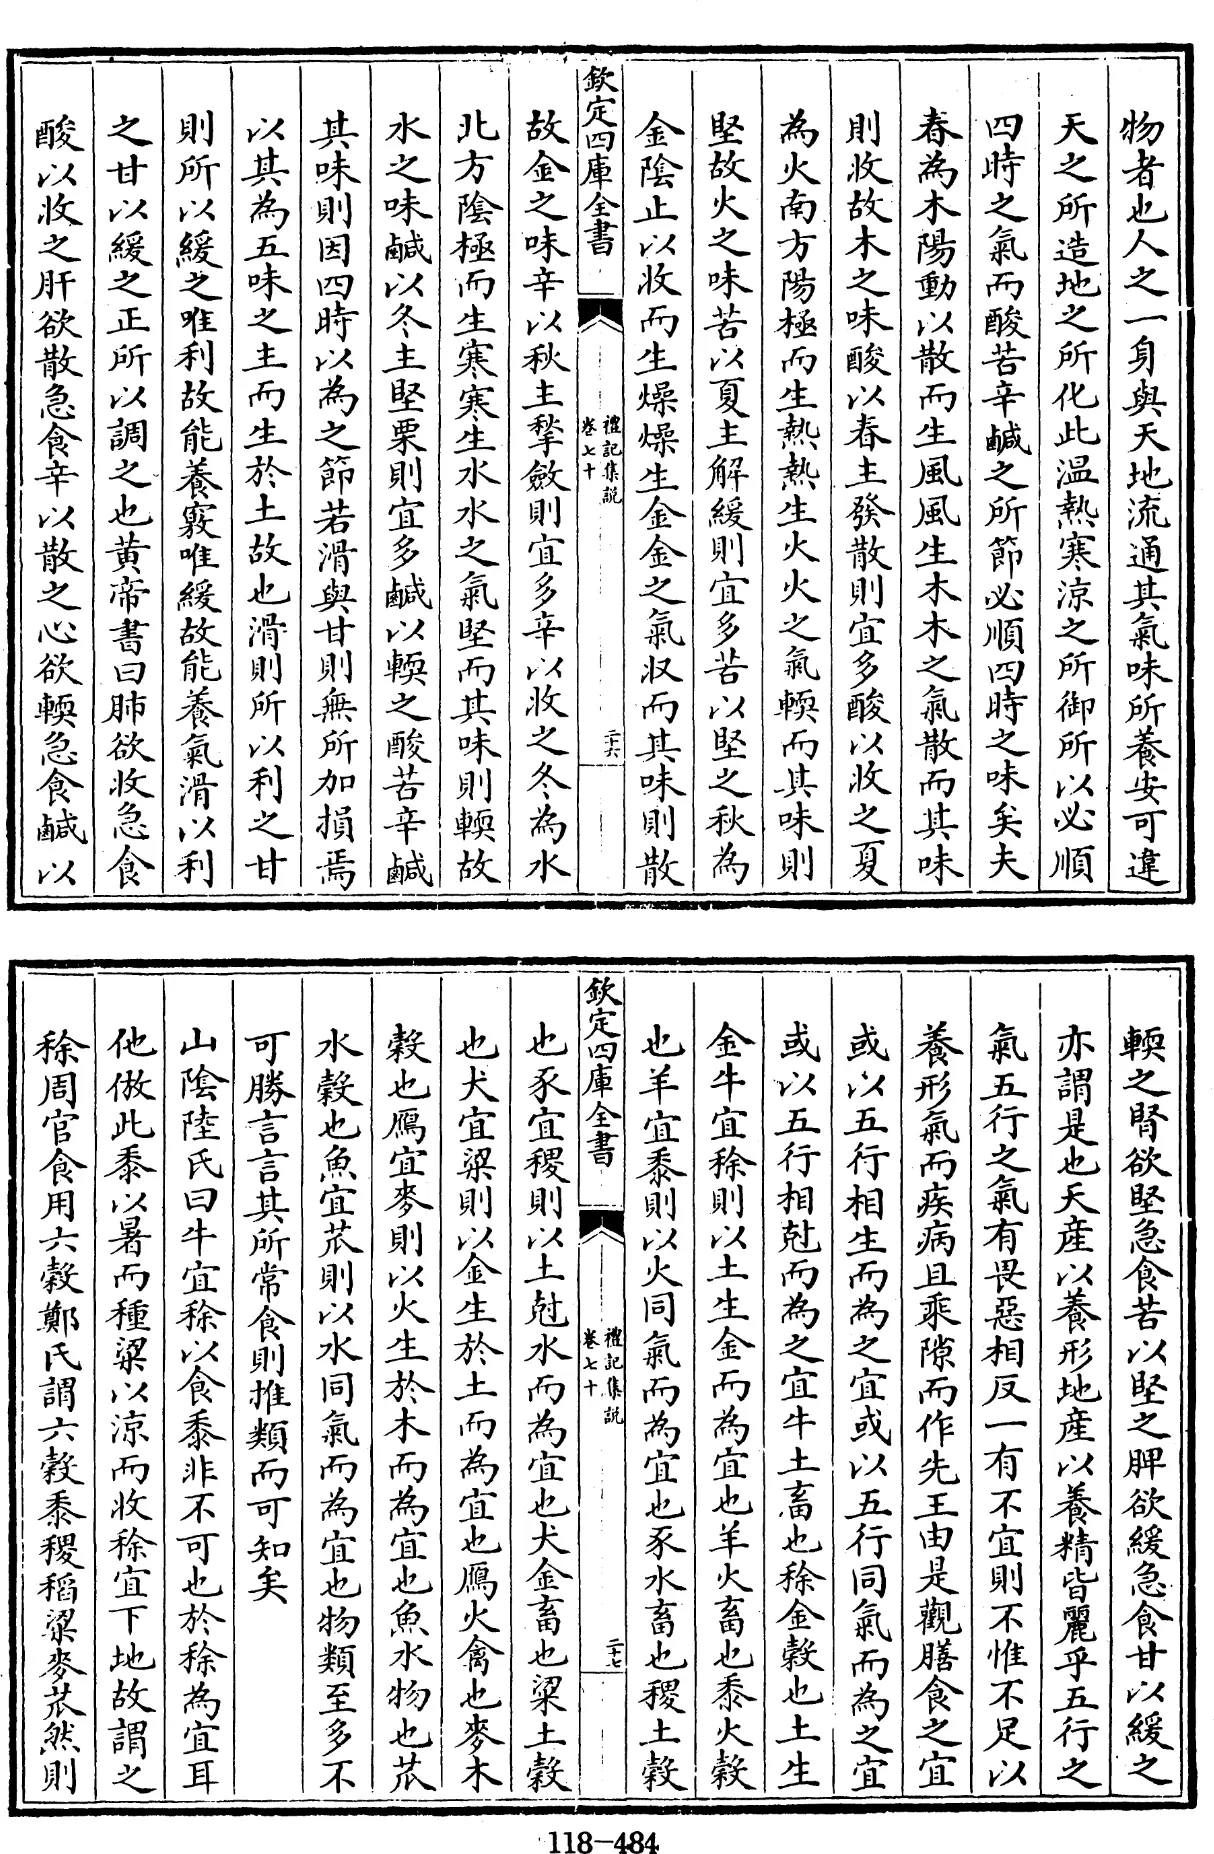 物者也人之一身與天地流通其氣味所養安可違
天之所造地之所化此温熱寒涼之所御所以必順
四時之氣而酸苦辛鹹之所節必順四時之味矣夫
春為木陽動以散而生風風生木木之氣散而其味
則收故木之味酸以春主發散則宜多酸以收之夏
為火南方陽極而生熱熱生火火之氣輭而其味則
堅故火之味苦以夏主解緩則宜多苦以堅之秋為
金陰止以收而生燥燥生金金之氣収而其味則散
欽定四庫全書
禮記集說
卷七十
二十六
故金之味辛以秋主揫斂則宜多辛以收之冬為水
北方陰極而生寒寒生水水之氣堅而其味則輭故
水之味鹹以冬主堅栗則宜多鹹以輭之酸苦辛鹹
其味則因四時以為之節若滑與甘則無所加損焉
以其為五味之主而生於土故也滑則所以利之甘
則所以緩之唯利故能養竅唯緩故能養氣滑以利
之甘以緩之正所以調之也黄帝書曰肺欲收急食
酸以收之肝欲散急食辛以散之心欲輭急食鹹以
輭之腎欲堅急食苦以堅之脾欲緩急食甘以緩之
亦謂是也天産以養形地産以養精皆麗乎五行之
氣五行之氣有畏惡相反一有不宜則不惟不足以
養形氣而疾病且乘隙而作先王由是觀膳食之宜
或以五行相生而為之宜或以五行同氣而為之宜
或以五行相尅而為之宜牛土畜也稌金穀也土生
金牛宜稌則以土生金而為宜也羊火畜也黍火穀
也羊宜黍則以火同氣而為宜也豕水畜也稷土穀
欽定四庫全書
禮記集說
卷七十
二十七
也豕宜稷則以土尅水而為宜也犬金畜也粱土穀
也犬宜粱則以金生於土而為宜也鴈火禽也麥木
穀也鴈宜麥則以火生於木而為宜也魚水物也苽
水穀也魚宜苽則以水同氣而為宜也物類至多不
可勝言言其所常食則推類而可知矣
山陰陸氏曰牛宜稌以食黍非不可也於稌為宜耳
他倣此黍以暑而種粱以涼而收稌宜下地故謂之
稌周官食用六穀鄭氏謂六穀黍稷稻粱麥苽然則
118-484